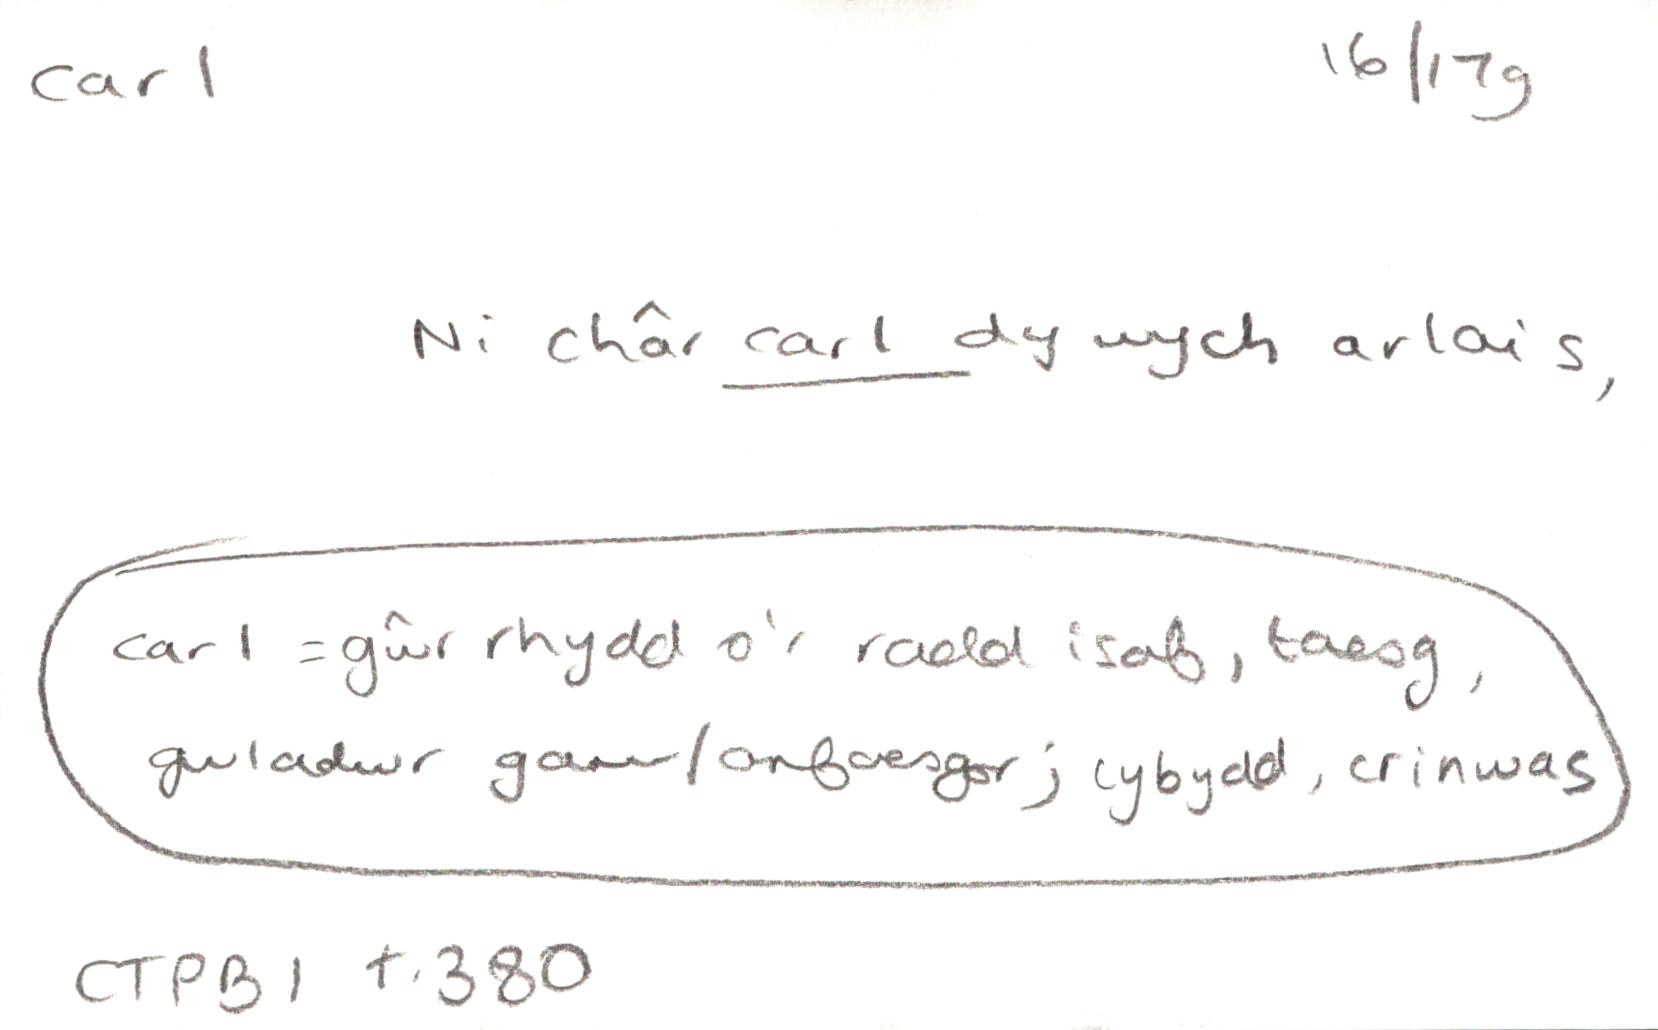 carl 16/17g
Ni châr carl dy wych arlais,
carl = gŵr rhydd o'r radd isaf, taeog,
gwladwr garw/anfoesgar; cybydd, crinwas
CTPB1 t.380